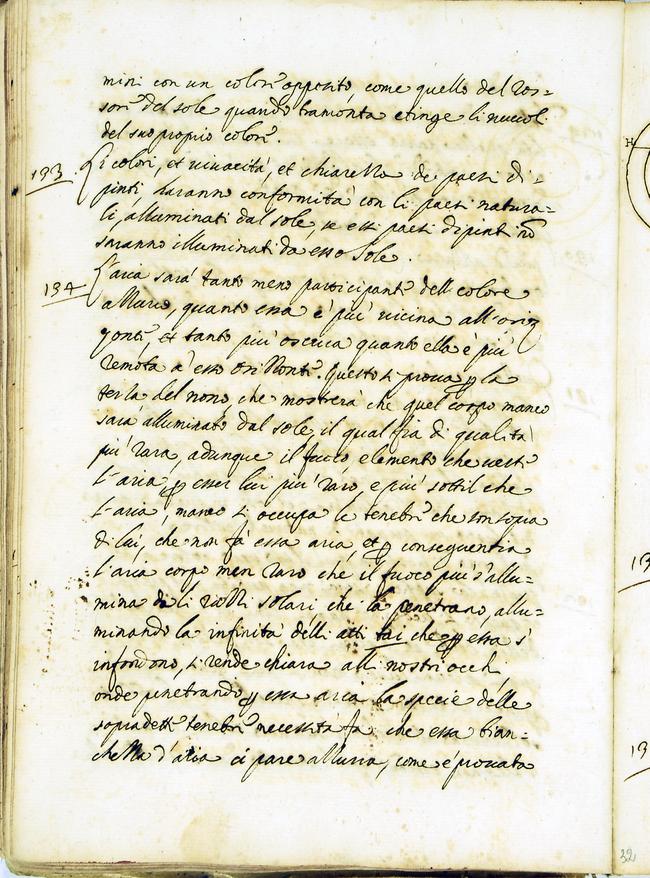 mini con un color opposito, come quello del ros=
sor del sole quando tramonta et tinge li nuvol
del suo proprio color.
133. Li colori, et vivacità, et chiarezza de paesi di=
pinti haranno conformità con li paesi natura=
li, alluminati dal sole, se essi paesi dipinti nō
saranno illuminati da esso sole.
134 L'aria sarà tanto meno participante dell colore
azzuro, quanto essa è più vicina all'oriz
zonte, et tanto più oscura quanto ella è più
remota à esso orizzonte. Questo si prova ꝑ la
terza del nono, che mostrerà che quel corpo manco
sarà alluminato dal sole il qual fia di qualità
più rara, adunque il fuoco, elemento che veste
l'aria ꝑ esser lui più raro, e più sottil che
l'aria, manco ci occupa le tenebre che son sopra
di lui, che non fà essa aria, et ꝑ conseguentia
l'aria corpo men raro che il fuoco più s'allu=
mina da li razzi solari che la penetrano, allu=
minando la infinità delli atti tai che ꝑ essa s'
infondono, si rende chiara alli nostri occhi,
onde penetrando ꝑ essa aria la speccie delle
sopradette tenebre necessità fa che essa bian=
chezza d'aria ci pare azzurra, come è provata
32